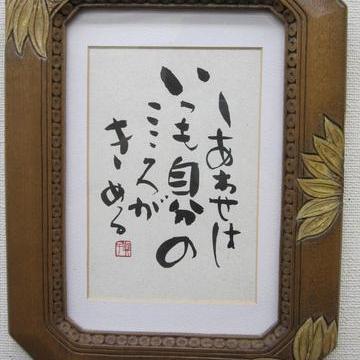 しあわせは
いつも自分の
こころが
きめる